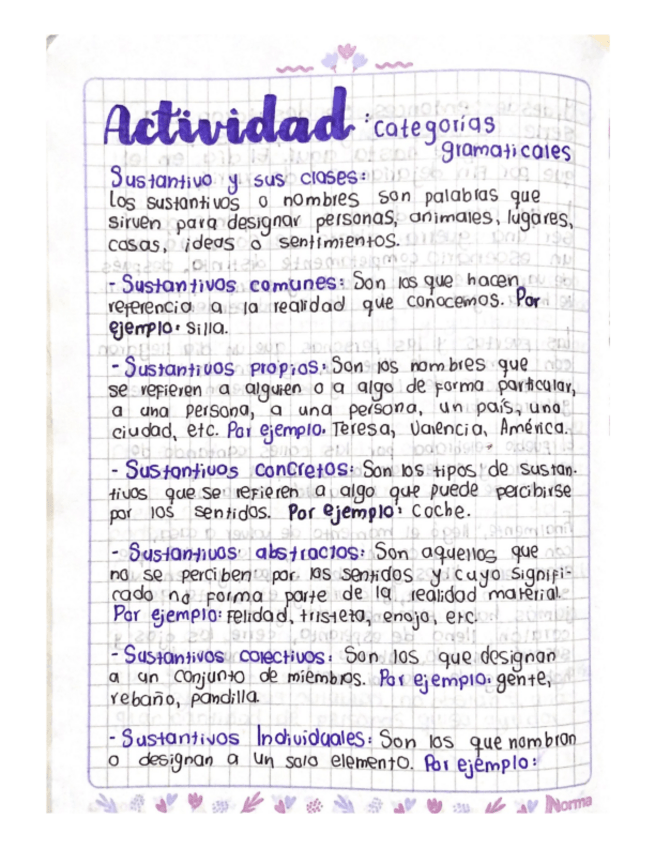 Actividad: categorías
gramaticales
Sustantivo y sus clases:
los sustantivos o nombres son palabras que
sirven para designar personas, animales, lugares,
cosas, ideas o sentimientos.
- Sustantivos comunes: Son los que hacen
referencia a la realidad que conocemos. Por
ejemplo: Silla.
- Sustantivos propios: Son los nombres que
se refieren a alguien o a algo de forma particular,
a una persona, a una persona, un país, una
ciudad, etc. Por ejemplo. Teresa, Valencia, América.
- Sustantivos concretos: Son los tipos de sustan-
tivos que se refieren a algo que puede percibirse
por los sentidos. Por ejemplo: Coche.
- Sustantivos abstractos: Son aquellos que
no se perciben por los sentidos y cuyo signifi-
cado no forma parte de la realidad material.
Por ejemplo: Felidad, tristeta, enojo, etc.
- Sustantivos colectivos: Son los que designan
a un conjunto de miembros. Por ejemplo: gente,
rebaño, pandilla.
- Sustantivos Individuales: Son los que nombran
o designan a un solo elemento. Por ejemplo:
Norma